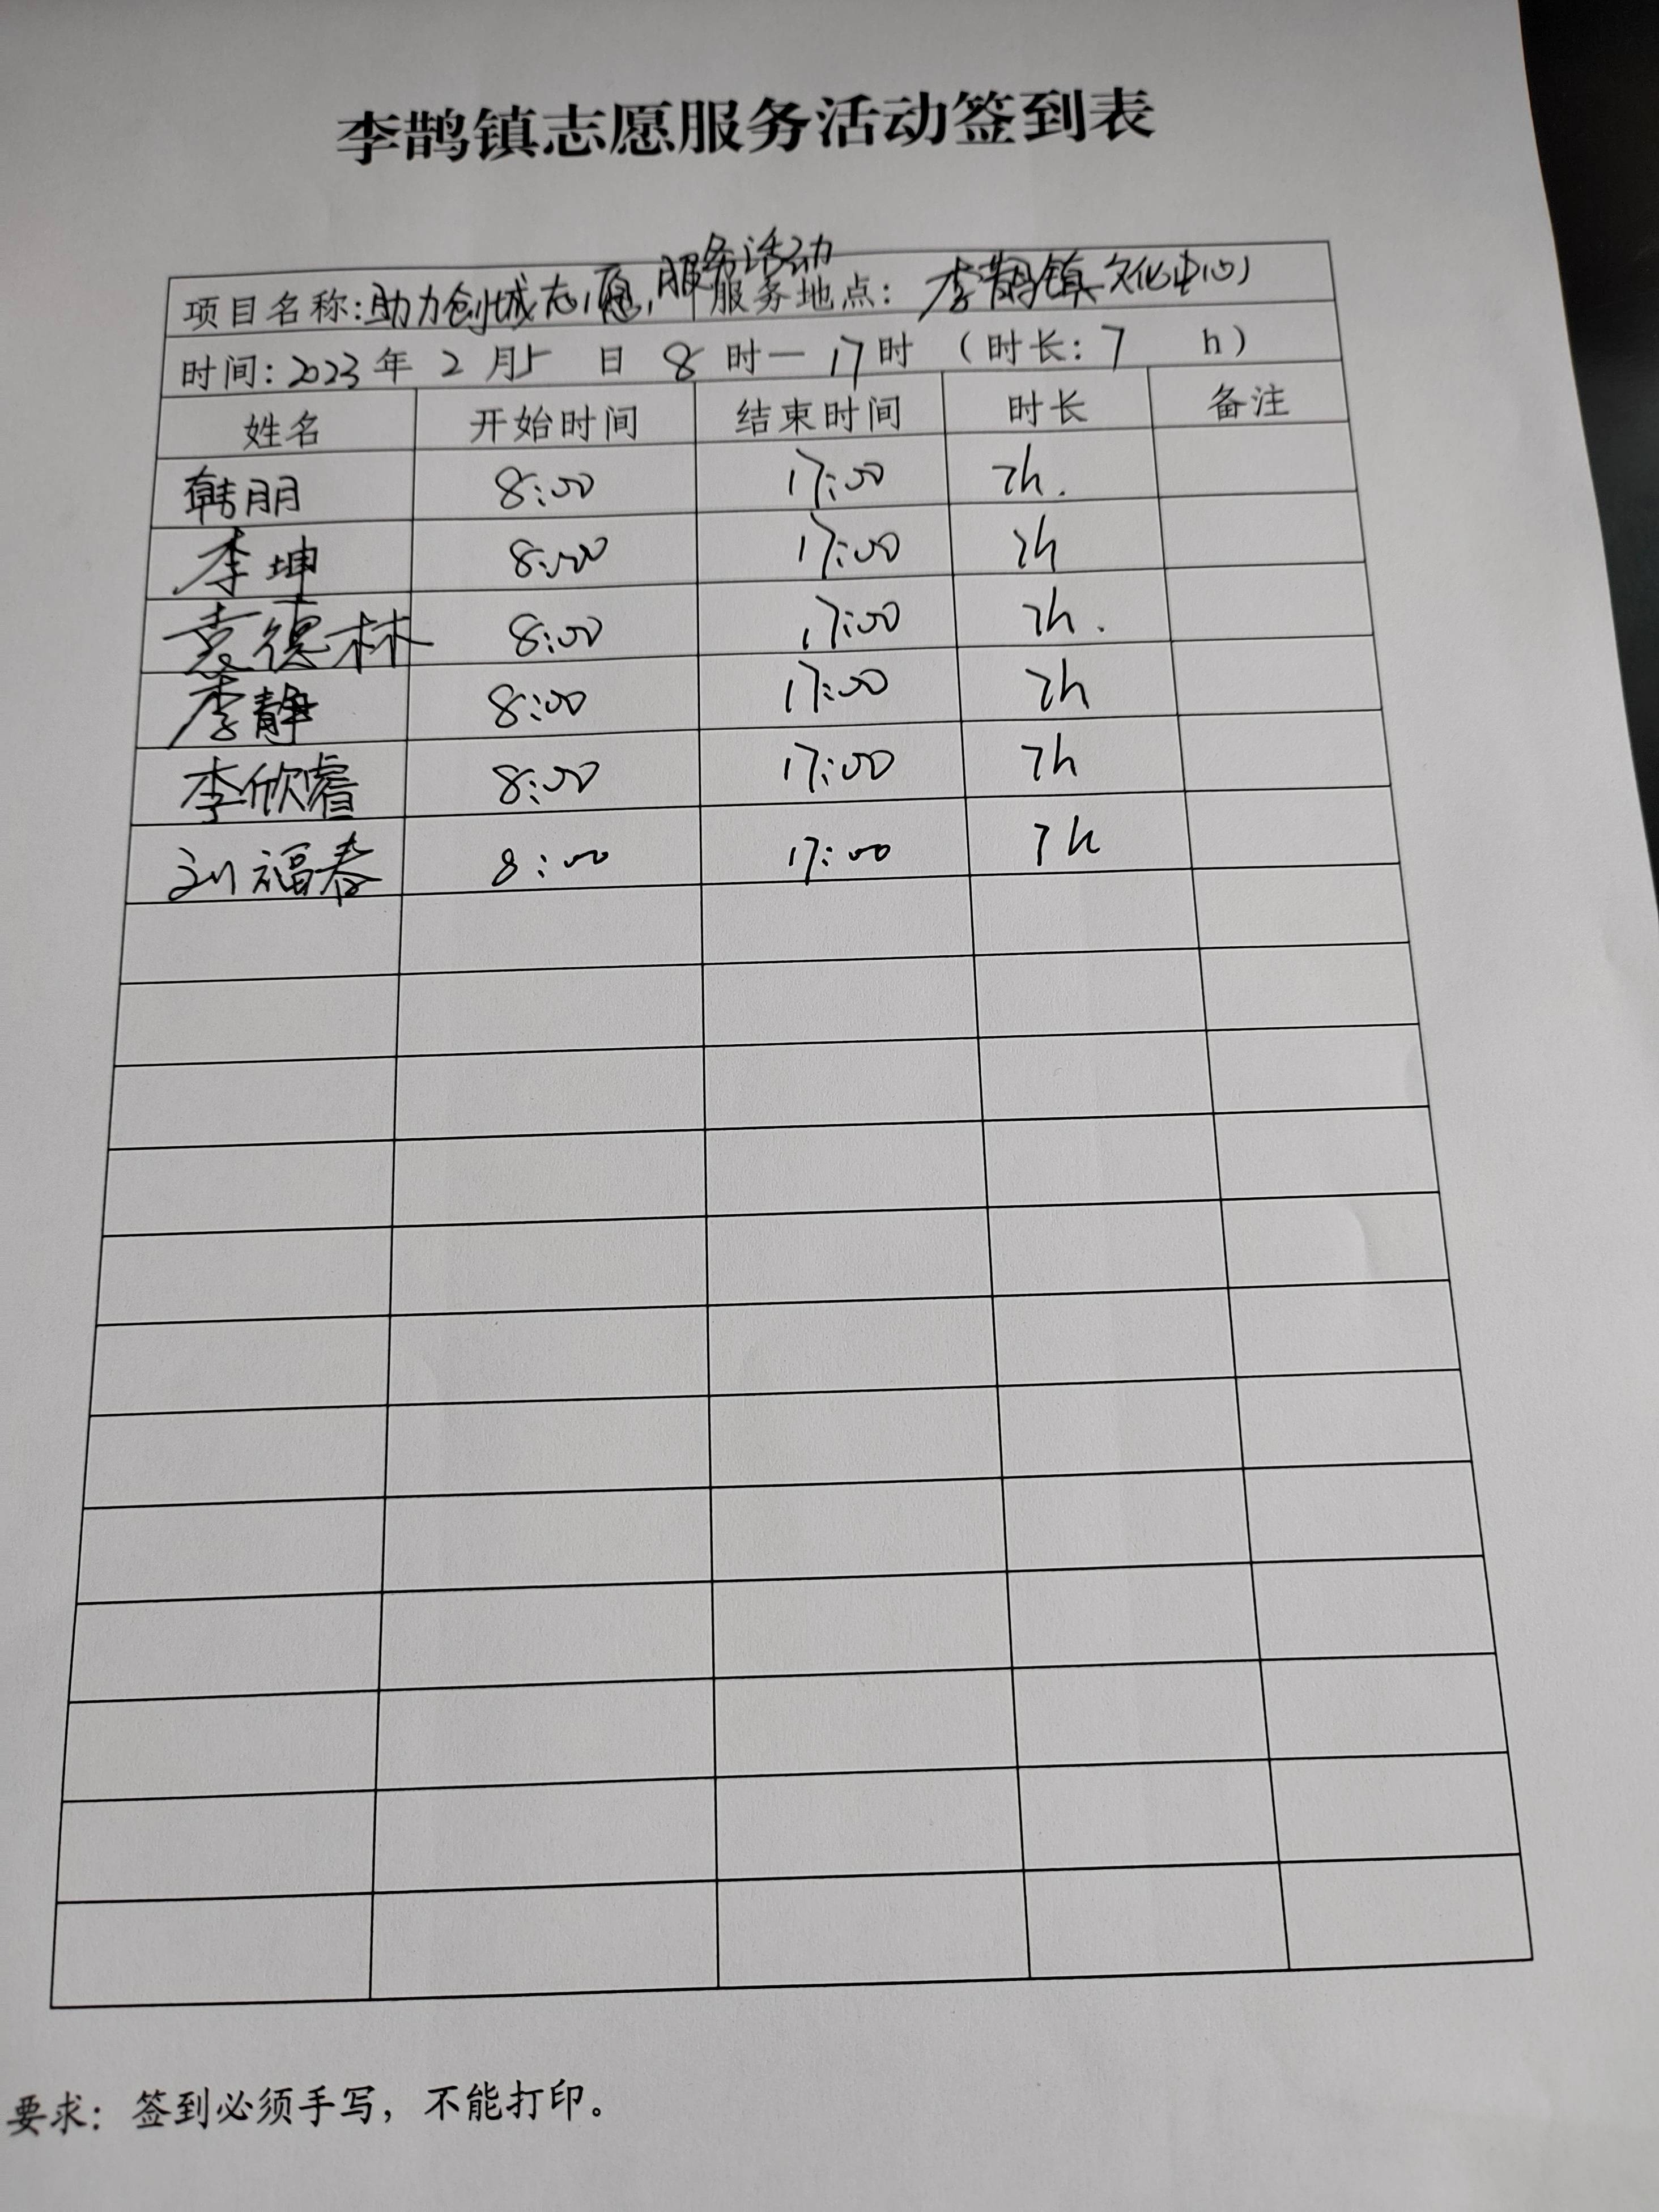 李鹊镇志愿服务活动签到表
项目名称:助力创城志愿服务活动 服务地点:李鹊镇文化中心
时间:2023年 2月5 日 8 时—17时 (时长:7 h)
姓名 开始时间 结束时间 时长 备注
韩朋 8:00 17:00 7h.
李坤 8:00 17:00 7h
袁德林 8:00 17:00 7h.
李静 8:00 17:00 7h
李欣睿 8:00 17:00 7h
刘福春 8:00 17:00 7h
要求:签到必须手写,不能打印。